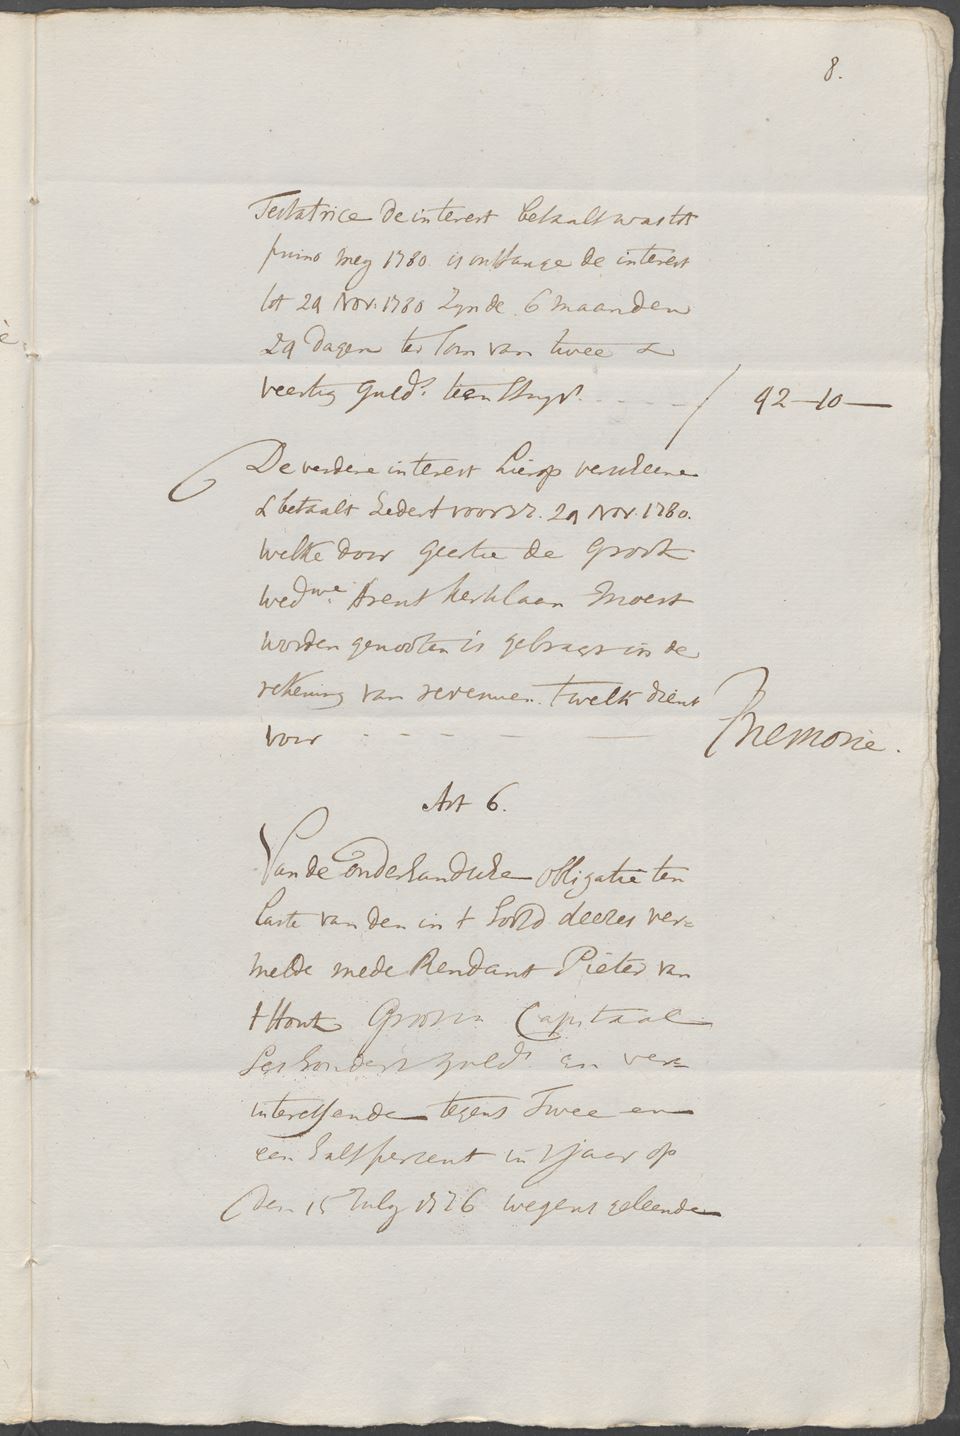 8.
Testatrice de interest betaalt was tot
primo mey 1780. is ontfange de interest
tot 29 Nov. 1780 Zynde 6 maanden
29 dagen ter Som van twee &
veertig guld.s tien Stuyv.r - - - - / 42 - 10 -
De verdere interest hierop verscheene
& betaalt Zedert voorsz. 29 Nov. 1780.
welke door Geertie de Groot
wed.we Arent Kerklaan moest
worden genooten is gebragt in de
rekening van revenuen. t welk dient
voor - - - - - - Memorie.
Art 6.
Van de onderhandsche obligatie ten
laste van den in t hoofd deezes ver=
melde mede Rendant Pieter van
t Hout Groot in Capitaal
Seshondert guld.s en ver=
interessende tegens Twee en
een half percent in t jaar op
den 15 July 1776 wegens geleende